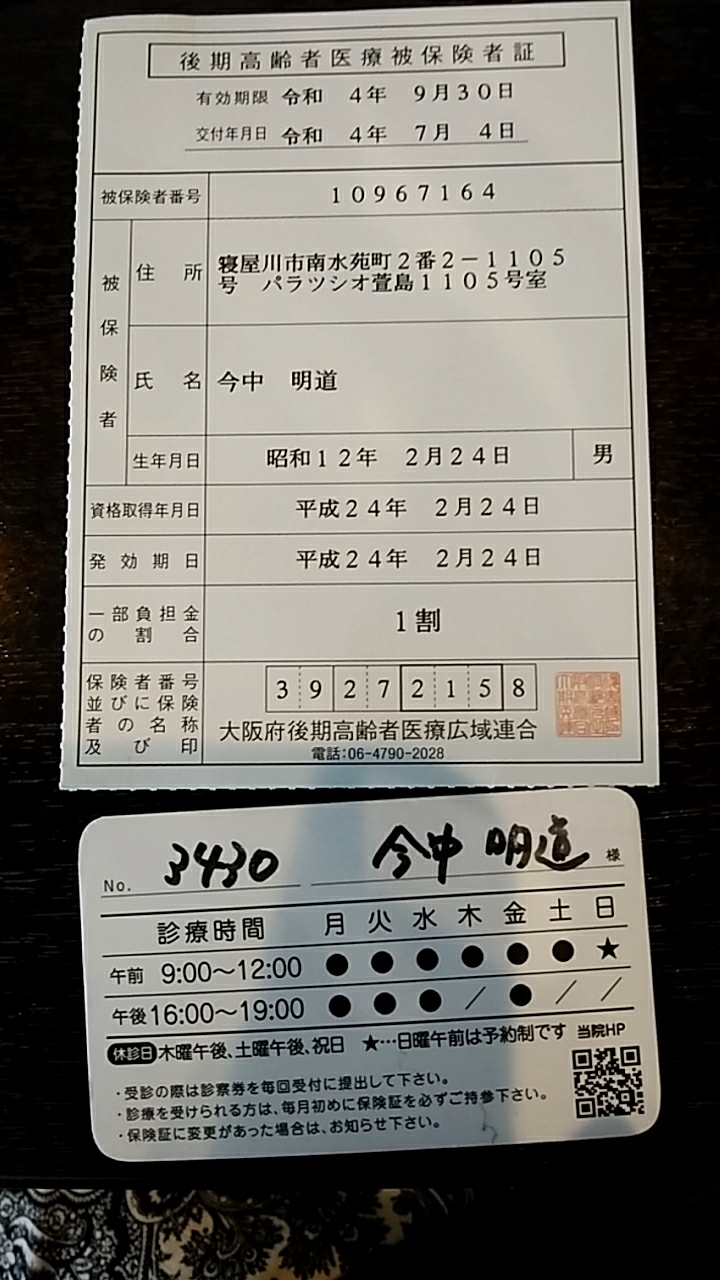 後期高齢者医療被保険者証
有効期限 令和 4年 9月30日
交付年月日 令和 4年 7月 4日
被保険者番号 10967164
被保険者
住所 寝屋川市南水苑町2番2-1105
号 パラツシオ萱島1105号室
氏名 今中 明道
生年月日 昭和12年 2月24日 男
資格取得年月日 平成24年 2月24日
発効期日 平成24年 2月24日
一部負担金
の割合 1割
保険者番号 39272158
並びに保険
者の名称 大阪府後期高齢者医療広域連合
及び印 電話:06-4790-2028
No. 3430 今中 明道 様
診療時間 月 火 水 木 金 土 日
午前 9:00~12:00 ● ● ● ● ● ● ★
午後 16:00~19:00 ● ● ● / ● / /
休診日 木曜午後、土曜午後、祝日 ★…日曜午前は予約制です 当院HP
・受診の際は診察券を毎回受付に提出して下さい。
・診療を受けられる方は、毎月初めに保険証を必ずご持参下さい。
・保険証に変更があった場合は、お知らせ下さい。